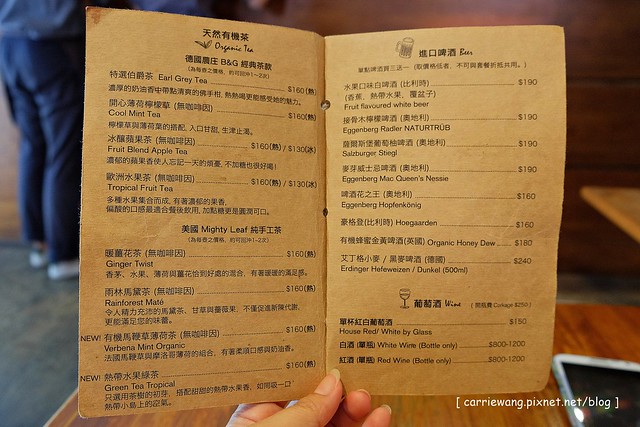 天然有機茶
Organic Tea
德國農庄 B&G 經典茶款
(為每壺之價格，約可回沖1~2次)
特選伯爵茶 Earl Grey Tea $160(熱)
濃厚的奶油香中帶點清爽的佛手柑, 熱熱喝更能感受她的魅力。
開心薄荷檸檬草 (無咖啡因) $160(熱)
Cool Mint Tea
檸檬草與薄荷葉的搭配, 入口甘甜, 生津止渴。
冰釀蘋果茶 (無咖啡因) $160(熱) / $130(冰)
Fruit Blend Apple Tea
濃郁的蘋果香使人忘記一天的煩憂, 不加糖也很好喝!
歐洲水果茶 (無咖啡因) $160(熱) / $130(冰)
Tropical Fruit Tea
多種水果集合而成, 有著濃郁的果香,
偏酸的口感最適合餐後飲用, 加點糖更是圓潤可口。
美國 Mighty Leaf 純手工茶
(為每壺之價格, 約可回沖1~2次)
暖薑花茶 (無咖啡因) $160(熱)
Ginger Twist
香茅、水果、薄荷與薑花恰到好處的混合, 有著暖暖的滿足感。
雨林馬黛茶 (無咖啡因) $160(熱)
Rainforest Maté
令人精力充沛的馬黛茶、甘草與薔薇果, 不僅促進新陳代謝,
更能滿足您的味蕾。
NEW! 有機馬鞭草薄荷茶 (無咖啡因) $160(熱)
Verbena Mint Organic
法國馬鞭草與摩洛哥薄荷的組合, 有著柔順口感與奶油香。
NEW! 熱帶水果綠茶 $160(熱)
Green Tea Tropical
只選用茶樹的初芽, 搭配甜甜的熱帶水果香, 如同吸一口
熱帶小島上的空氣。
進口啤酒 Beer
單點啤酒買三正一 (取價格低者, 不可與套餐折抵共用。)
水果口味白啤酒 (比利時) $190
(香蕉、熱帶水果、覆盆子)
Fruit flavoured white beer
接骨木檸檬啤酒 (奧地利) $190
Eggenberg Radler NATURTRÜB
薩爾斯堡葡萄柚啤酒 (奧地利) $190
Salzburger Stiegl
麥芽威士忌啤酒 (奧地利) $190
Eggenberg Mac Queen's Nessie
啤酒花之王 (奧地利) $160
Eggenberg Hopfenkönig
豪格登(比利時) Hoegaarden $160
有機蜂蜜金黃啤酒(英國) Organic Honey Dew $180
艾丁格小麥 / 黑麥啤酒 (德國) $240
Erdinger Hefeweizen / Dunkel (500ml)
葡萄酒 Wine (開瓶費 Corkage $250)
單杯紅白葡萄酒 $150
House Red/ White by Glass
白酒 (單瓶) White Wine (Bottle only) $800-1200
紅酒 (單瓶) Red Wine (Bottle only) $800-1200
[ carriewang.pixnet.net/blog ]